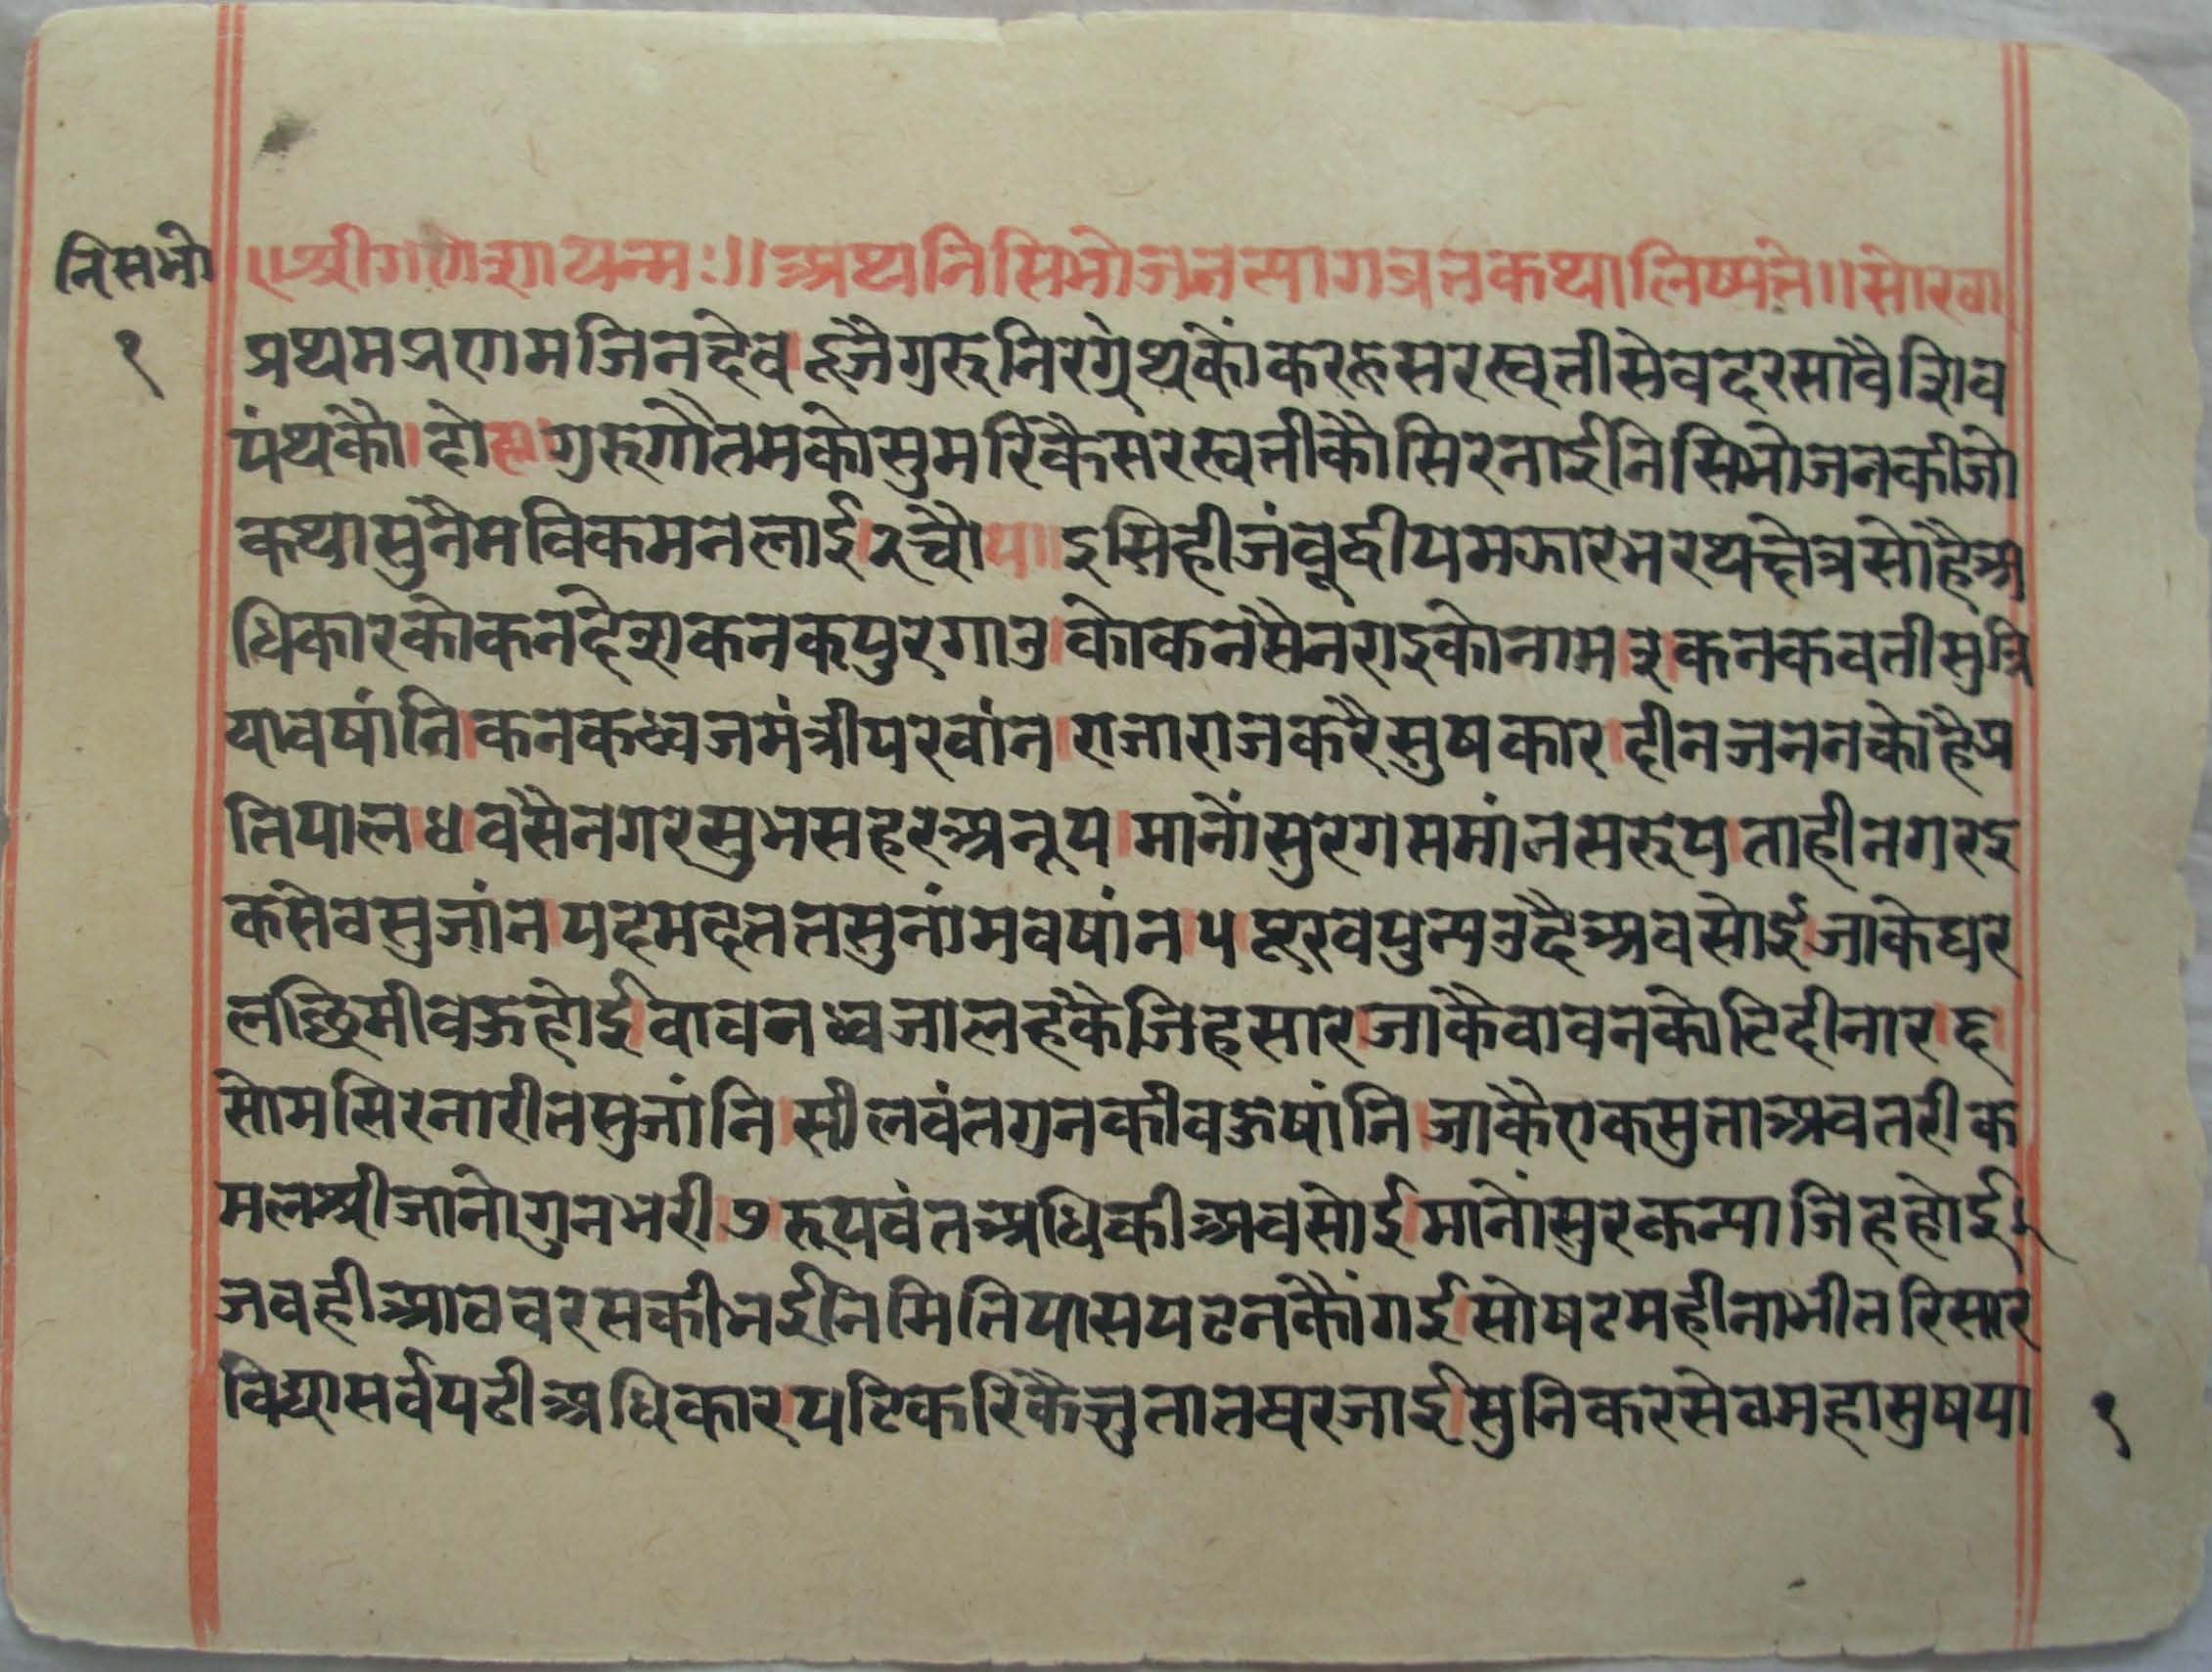 निसभो
१
॥श्रीगणेशायन्मः॥अथनिसिभोजनत्यागव्रतकथालिष्यते॥सोरठा
प्रथमप्रणमजिनदेव।दूजैगुरुनिरग्रंथकौंकरहूसरस्वतीसेवदरसावैशिव
पंथकौ।दोहागुरुगौतमकोसुमरिकैसरस्वतीकौसिरनाईनिसिभोजनकीजो
कथासुनैभविकमनलाई।२चौपाइसिहीजंबूदीपमझारभरथछेत्रसोहैअ
धिकारकोकनदेशकनकपुरगाउ।कोकनसैनराइकोनाम३कनकवतीसुत्रि
यावषांनि।कनकध्वजमंत्रीपरवांन।राजाराजकरैसुषकार।दीनजननकोहैप्र
तिपाल४वसैनगरसुभसहरअनूप।मानौंसुरगसमांनसरूप।ताहीनगरइ
कसेवसुजांन।पदमदततसुनांमवषांन५पूरवपुन्यउदैअवसोई।जाकेघर
लछिमीवहूहोई।वावनध्वजालहकैजिहसार।जाकैवावनकोटिदीनार।६
सोमसिरनारीतसुजांनि।सीलवंतगुनकीवहूषांनि।जाकैएकसुताअवतरीक
मलश्रीजानोगुनभरी।७रूपवंतअधिकीअवसोई।मानौंसुरकन्याजिहहोई।
जवहीआठवरसकीभईनिमितिपासपढनकौंगई।सोषटमहीनाभीतरिसार
विद्यासर्वपढीअधिकार।पढिकरिकैसुतातघरजाई।सुनिकरसेठमहासुषपा
१